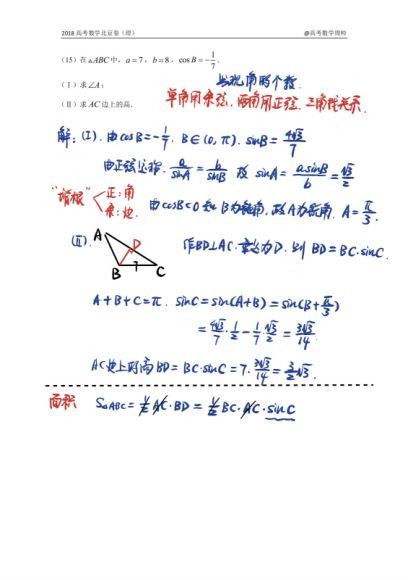 2018 高考数学北京卷（理） @高考数学周帅
(15) 在△ABC中，a=7，b=8，cosB=-1/7.
(Ⅰ) 求∠A；
(Ⅱ) 求AC边上的高.
出现角的个数.
单角用余弦，两角用正弦，三角找关系.
解：(I). 由cosB=-1/7. B∈(0, π). sinB=4√3/7
由正弦定理. a/sinA = b/sinB 故 sinA = a·sinB/b = √3/2
"增根" 正：角
余：边.
由cosB<0知B为钝角，故A为锐角. A=π/3.
(II). A B C D 7 作BD⊥AC. 垂足为D. 则 BD=BC·sinC.
A+B+C=π. sinC=sin(A+B)=sin(B+π/3)
= 4√3/7·1/2 - 1/7·√3/2 = 3√3/14
AC边上的高 BD=BC·sinC=7·3√3/14=3/2√3.
面积 S△ABC = 1/2 AC·BD = 1/2 BC·AC·sinC